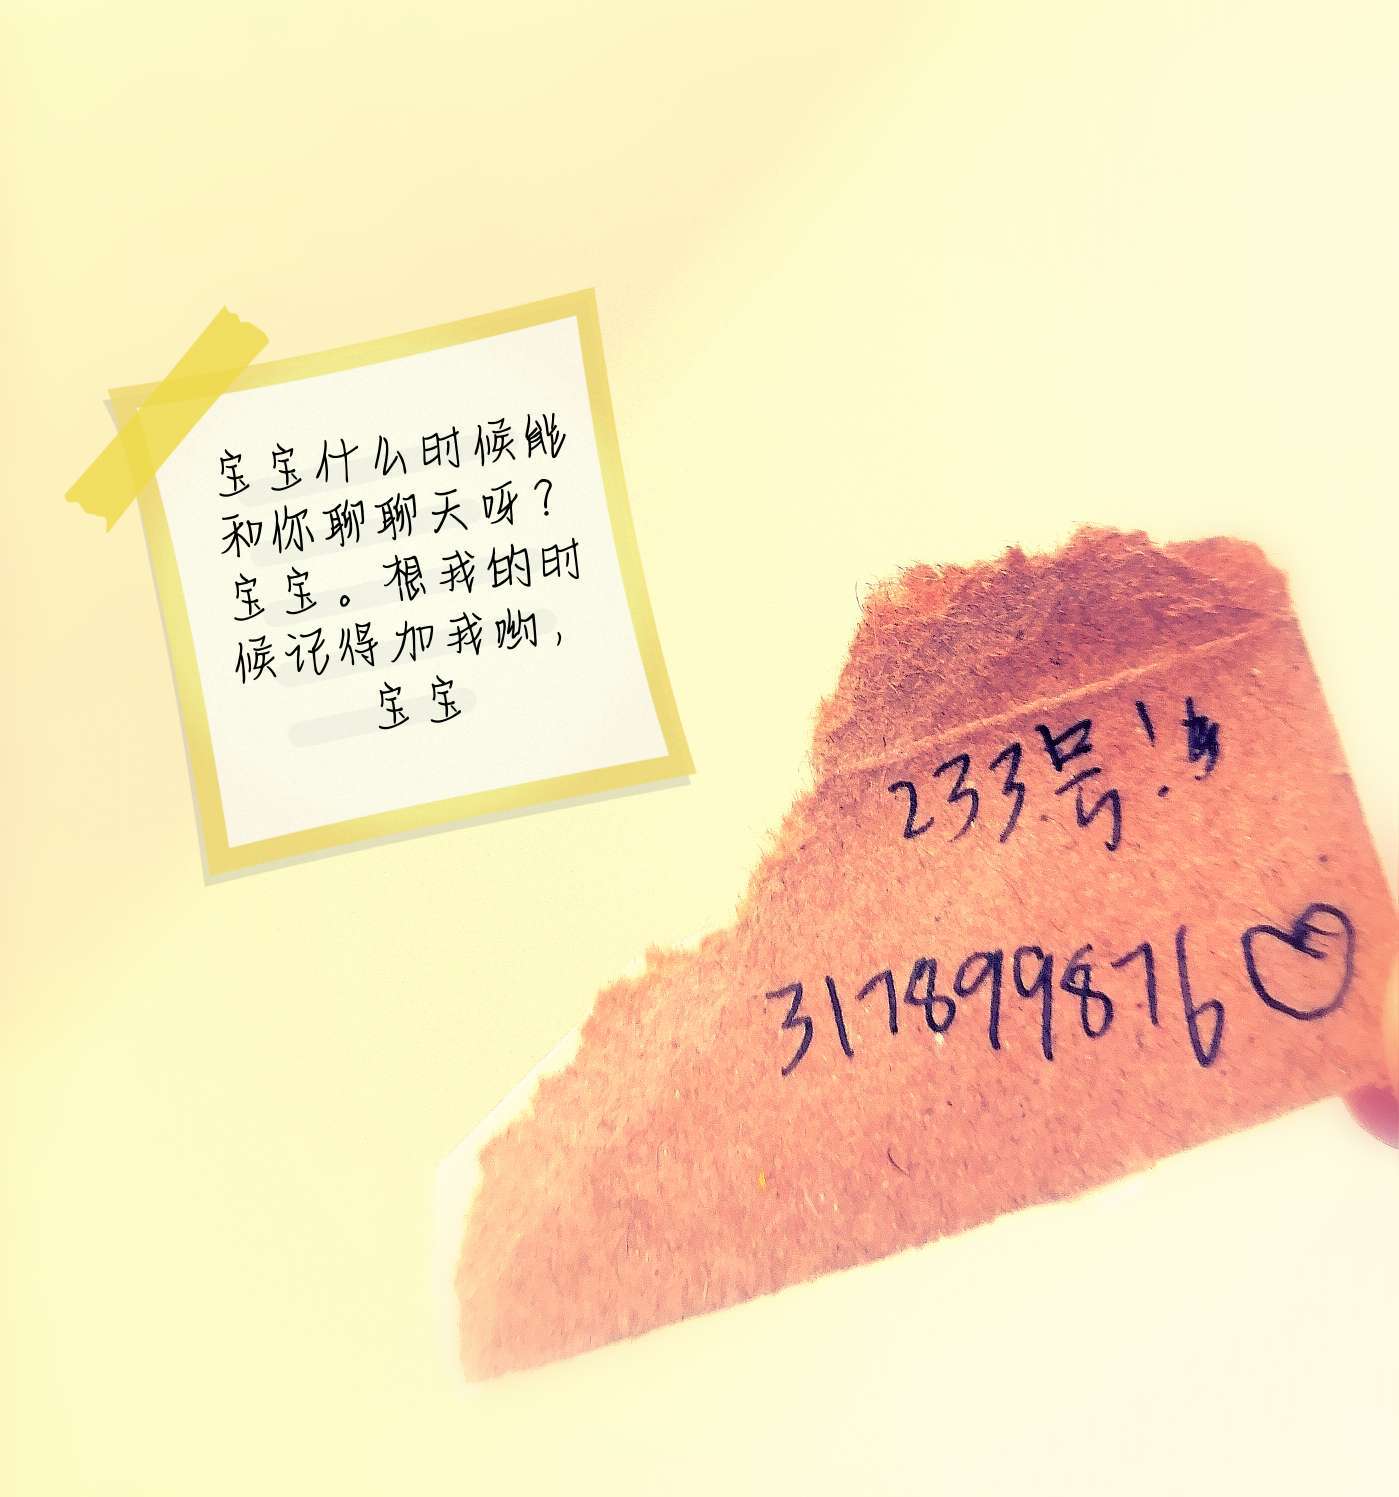 宝宝什么时候能
和你聊聊天呀？
宝宝。想我的时
候记得加我哟，
宝宝
233号！
317899876